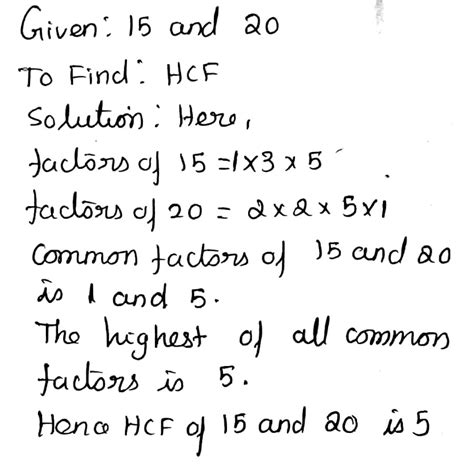 Given: 15 and 20
To Find: HCF
Solution: Here,
factors of 15 = 1 x 3 x 5
factors of 20 = 2 x 2 x 5 x 1
Common factors of 15 and 20
is 1 and 5.
The highest of all common
factors is 5.
Hence HCF of 15 and 20 is 5